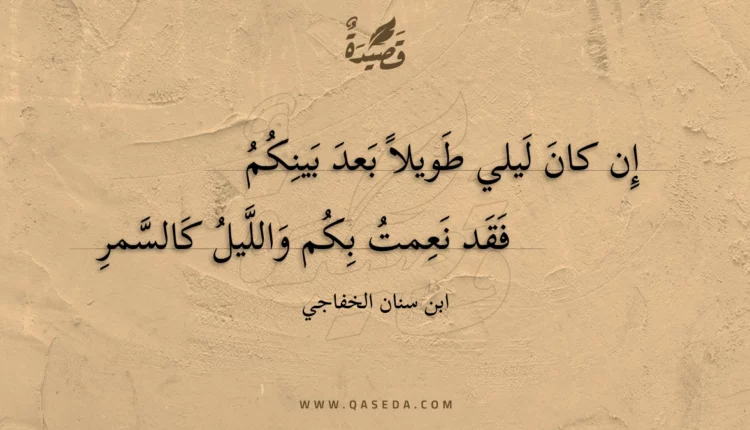 قَصِيدَةٌ
إِن كانَ لَيلي طَويلاً بَعدَ بَينِكُمُ
فَقَد نَعِمتُ بِكُم وَاللَّيلُ كَالسَّمرِ
ابن سنان الخفاجي
WWW.QASEDA.COM